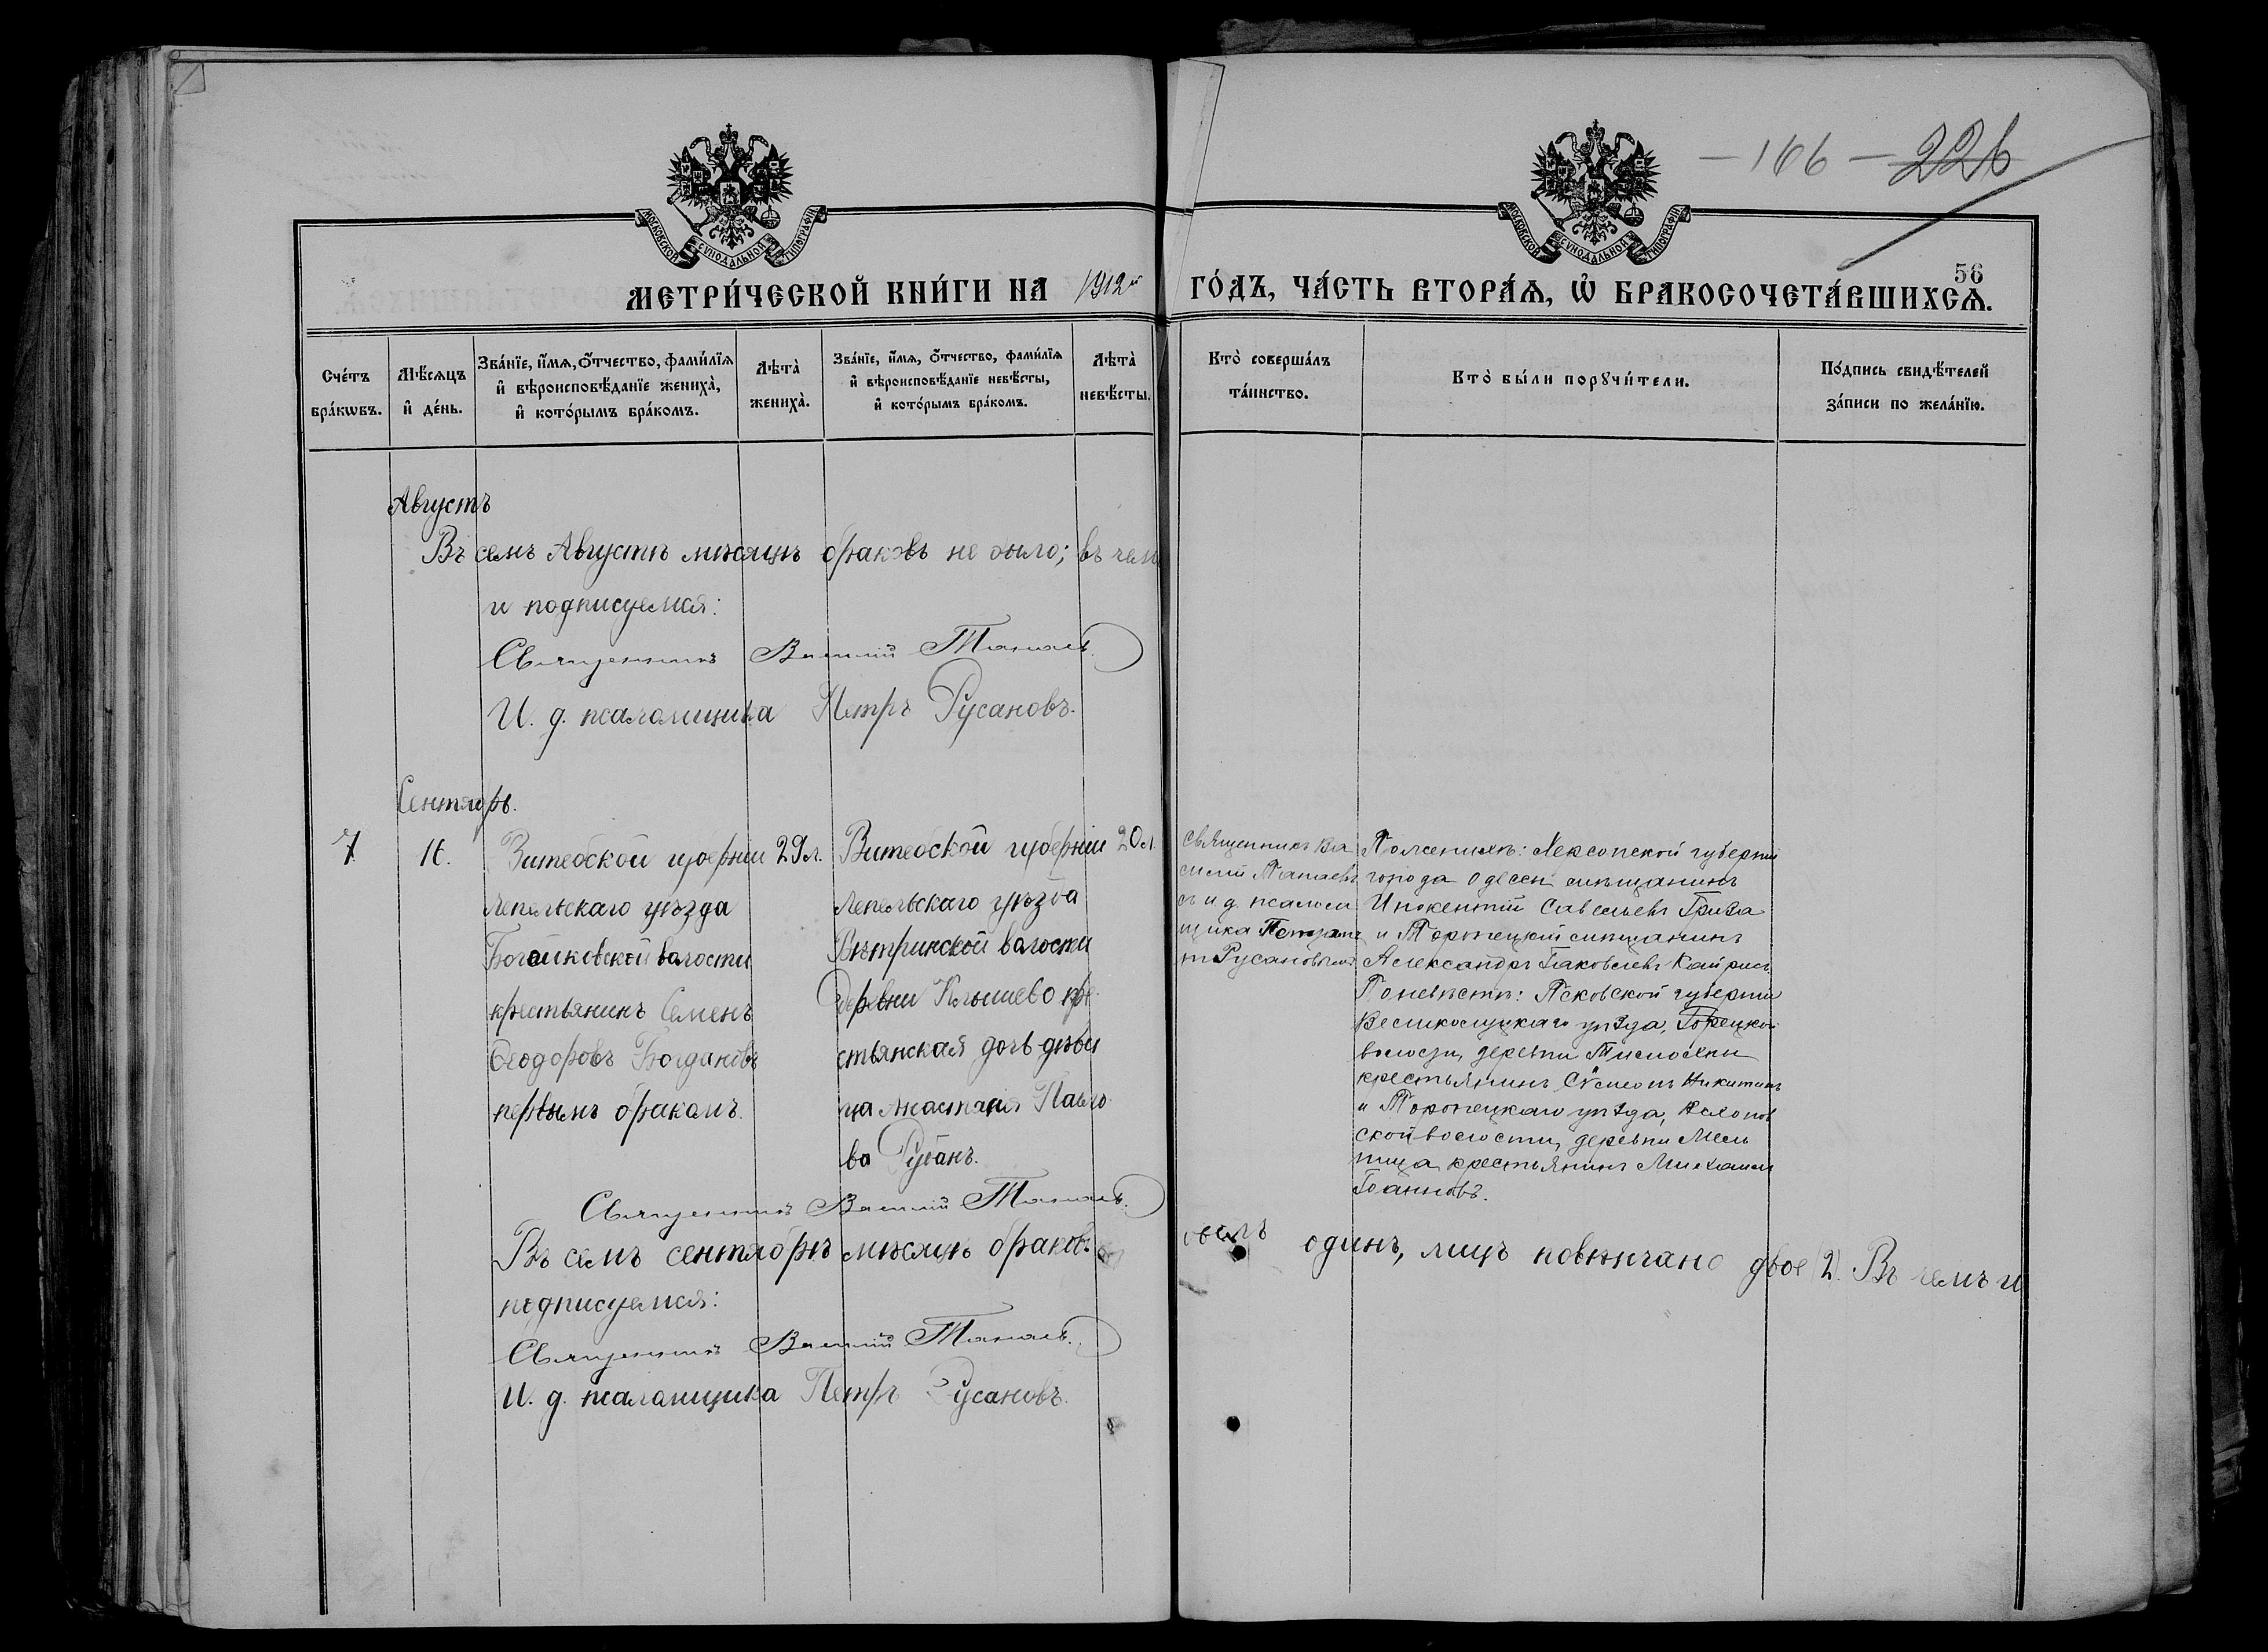 — 166 — 226
56
МОСКОВСКОЙ СѴНОДАЛЬНОЙ ТИПОГРАФІИ
МОСКОВСКОЙ СѴНОДАЛЬНОЙ ТИПОГРАФІИ
МЕТРИ́ЧЕСКОЙ КНИ́ГИ НА 1912й ГО́ДЪ, ЧА́СТЬ ВТОРА́Ѧ, Ѡ҆ БРАКОСОЧЕТА́ВШИХСѦ.
Сче́тъ бра́кѡвъ.
Мѣ́сяцъ и҆ де́нь.
Зва́нїе, и҆́мя, ѻ҆́тчество, фами́лїя и҆ вѣроисповѣ́данїе жениха̀, и҆ кото́рымъ бра́комъ.
Лѣта̀ жениха̀.
Зва́нїе, и҆́мя, ѻ҆́тчество, фами́лїя и҆ вѣроисповѣ́данїе невѣ́сты, и҆ кото́рымъ бра́комъ.
Лѣта̀ невѣ́сты.
Кто̀ соверша́лъ та́инство.
Кто̀ бы́ли порꙋчи́тели.
По́дпись свидѣ́телей за́писи по жела́нїю.
Августъ
Въ семъ Августѣ мѣсяцѣ браковъ не было; въ чемъ
и подписуемся:
Священникъ Василій
И. д. псаломщика Петръ Русановъ.
Сентябрь.
7
16.
Витебской губерніи
Лепельскаго уѣзда
волости
крестьянинъ Семенъ
Ѳеодоровъ Богдановъ
первымъ бракомъ.
29 л.
Витебской губерніи
Лепельскаго уѣзда
Вѣтринской волости
деревни кре-
стьянская дочь дѣви
ца Анастасія Павло
ва Рубанъ.
20 л.
Священникъ Ва
силій
съ и д. псалом
щика Петром
ъ Русановымъ
По женихѣ: Херсонской губерніи
города Одессы мѣщанинъ
Инокентій Савельевъ
и Торопецкій мѣщанинъ
Александръ Іаковлевъ
По невѣстѣ: Псковской губерніи
Великолуцкаго уѣзда,
волости, деревни
крестьянинъ Сѵмеонъ Никитинъ
и Торопецкаго уѣзда,
ской волости, деревни Мель
ница крестьянинъ Михаилъ
Іоанновъ.
Священникъ Василій
Въ семъ сентябрѣ мѣсяцѣ браковъ былъ одинъ, лицъ повѣнчано двое (2). Въ чемъ и
подписуемся:
Священникъ Василій
И. д. псаломщика Петръ Русановъ.